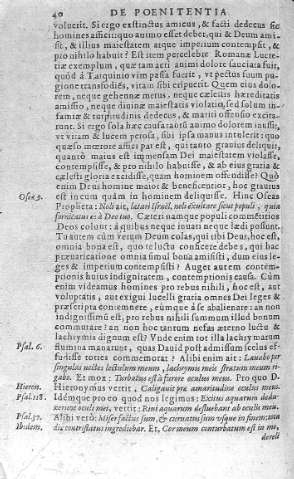 40 DE POENITENTIA
voluerit. Si ergo extinctus amicus, & facti dedecus sic
homines afficit quo animo esse debet, qui & Deum ami-
sit, & illius maiestatem atque imperium contempsit, &
pro nihilo habuit? Est item percelebre Romanæ Lucre-
tiæ exemplum, quæ tam acri animi dolore sauciata fuit,
quòd à Tarquinio vim passa fuerit, vt pectus suum pu-
gione transfodiës, vitam sibi eripuerit. Quem eius dolo-
rem, neque gehennæ metus, neque cælestis hæreditatis
amissio, neque diuinæ maiestatis violatio, sed solum infa-
miæ & turpitudinis dedecus, & mariti offensio excita-
runt. Si ergo sola hæc causa tanti animi dolorem iniussit,
vt vitam & lucem perosa, sibi ipsa manus intulerit: quo
quæso mœrore affici par est, qui tanto grauius deliquit,
quantò maius est immensam Dei maiestatem violasse,
contempsisse, & pro nihilo habuisse, & ab eius gratia &
cælesti gloria excidisse, quam hominem offendisse? Quò
enim Deus homine maior & beneficentior, hoc grauius
est in eum quàm in hominem deliquisse. Hinc Oseas
Osee 9. Propheta: Noli ait, lætari Israel, noli exultare sicut populi, quia
fornicatus es à Deo tuo. Cæteri namque populi commẽtitios
Deos colunt: à quibus neque iuuari neque lædi possunt.
Tu autem cùm verum Deum colas, qui tibi Deus, hoc est,
omnia bona est, quo te luctu conficere debes, qui hac
bonorum omnia simul bona amisisti, dum eius le-
ges & imperium contempsisti? Auget autem contem-
ptionis huius indignitatem, contemptionis causa. Cùm
enim videamus homines pro rebus nihili, hoc est, aut
voluptatis, aut exigui lucelli gratia omnes Dei leges &
præscripta contemnere, eumque à se abalienare: an non
indignissimũ est, pro rebus nihili summum illud bonum
commutare? an non hoc tantum nefas æterno luctu &
lachrymis dignum est? Vnde enim tot illa lachrymarum
flumina manarunt, quas Dauid post admissum scelus ef-
Psal. 6. fudisse toties commemorat? Alibi enim ait: Lauabo per
singulas noctes lectulum meum, lachrymis meis stratum meum ri-
gabo. Et mox: Turbatus est à furore oculus meus. Pro quo D.
Hieron. Hieronymus vertit, Caligauit præ amaritudine oculus meus.
Psal. 118. Idémque pro eo quod nos legimus: Exitus aquarum dedu-
xerunt oculi mei, vertit: Riui aquarum defluebant ab oculis meis.
Psal. 37. Alibi verò: Miser factus sum, & curuatus sum vsque in finem: tota
Ibidem. die contristatus ingrediebar. Et, Cor meum conturbatum est in me,
dereli